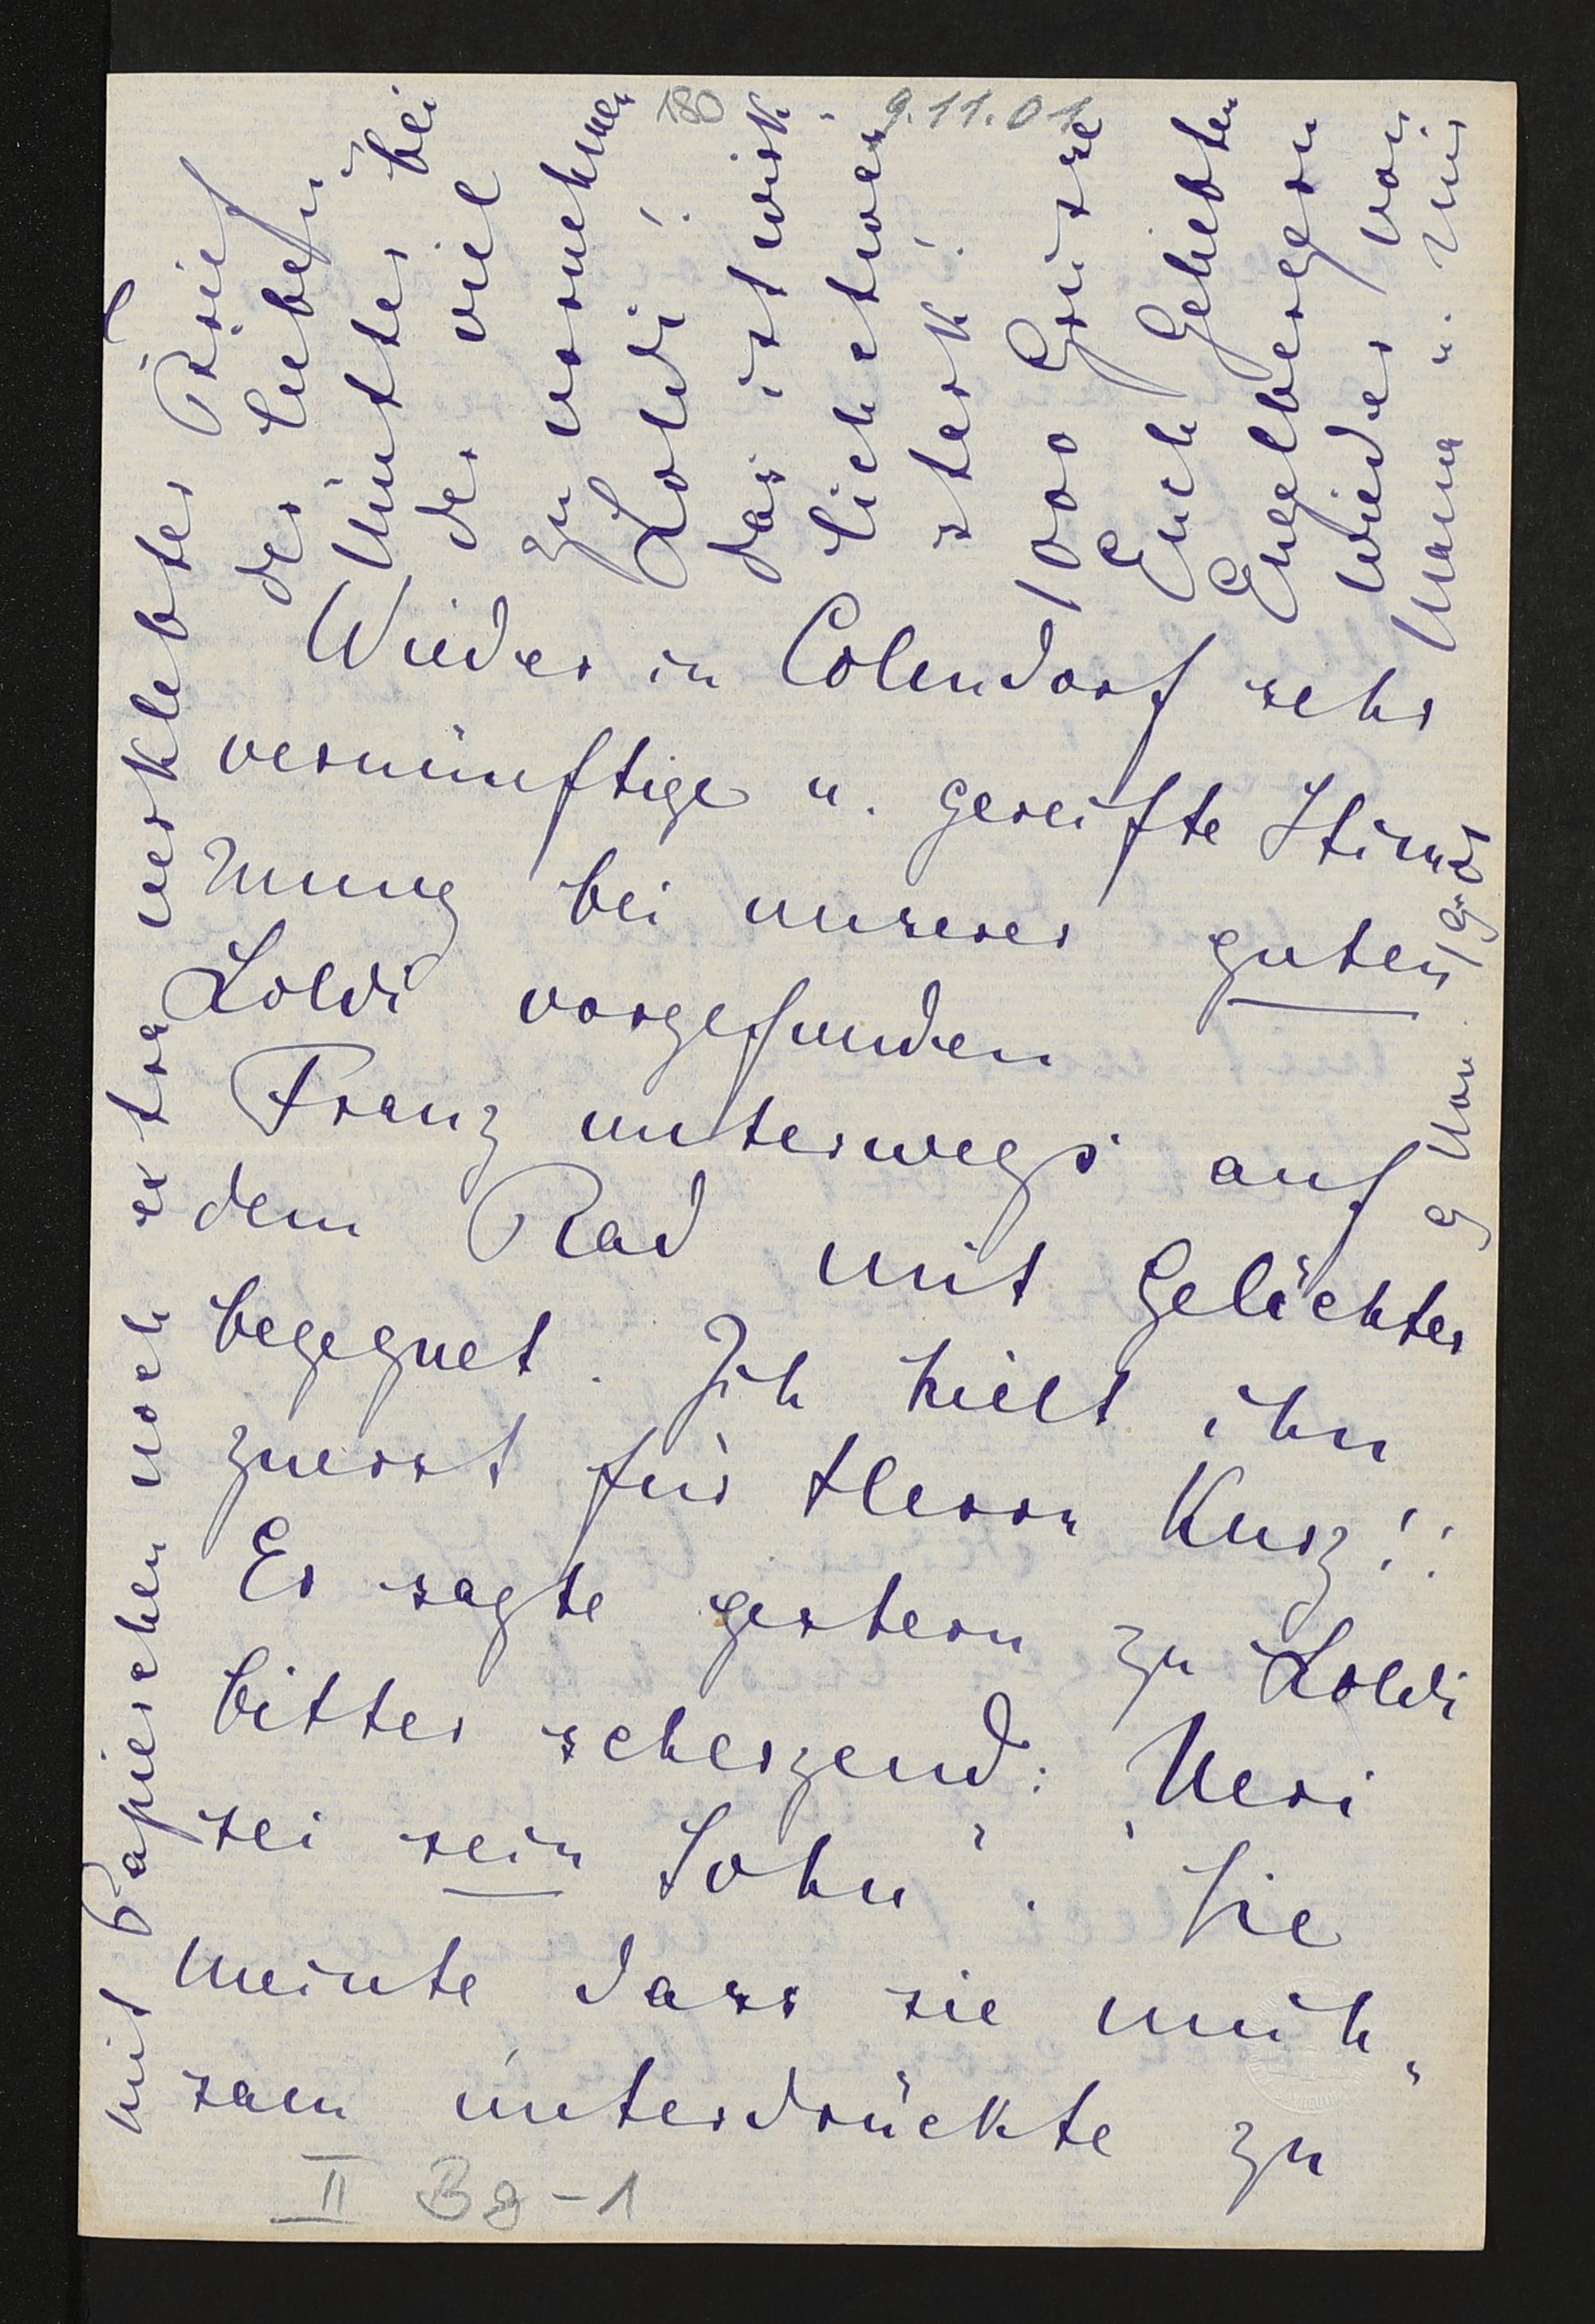 180 9.11.01
Wieder in Colendorf sehr
vernünftige u. gereifte Stim¬
mung bei unserer guten
Loldi vorgefunden
Franz unterwegs auf
dem Rad mit Gelächter
begegnet. Ich hielt ihn
zuerst für Herrn Kurz!!
Er sagte gestern zu Loldi
bitter scherzend: „Meri
sei sein Sohn". Sie
meinte, dass sie müh„
sam unterdrückte zu
mit Papierchen noch extra verklebter Brief
der lieben
Mutter bei
der viel
zu vornehmen
Loldi!
das ist wirk„
lich etwas
stark!
1000 Grüsse
Euch Geliebten
Engelbergern
wieder von
Mama u. mir
9 Nov. 1901
II Bg-1